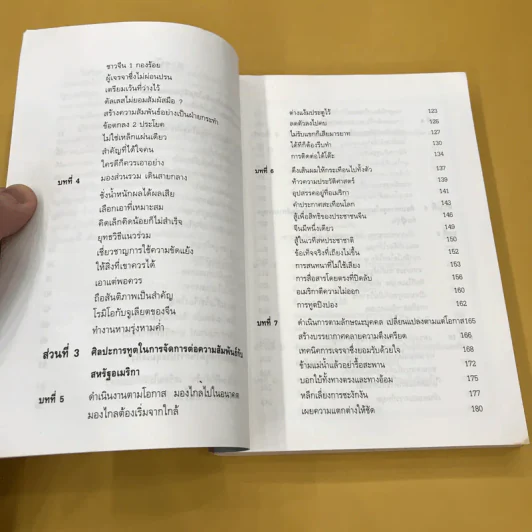 ชาวจีน 1 กองร้อย
ผู้เจรจาซึ่งไม่ผ่อนปรน
เตรียมเว้นที่ว่างไว้
ดัลเลสไม่ยอมสัมผัสมือ ?
สร้างความสัมพันธ์อย่างเป็นฝ่ายกระทำ
ข้อตกลง 2 ประโยค
ไม่ใช่เหล็กแผ่นเดียว
สำคัญที่ได้ใจคน
ใครดีก็ควรเอาอย่าง
บทที่ 4 มองส่วนรวม เดินสายกลาง
ชั่งน้ำหนักผลได้ผลเสีย
เลือกเอาที่เหมาะสม
คิดเล็กคิดน้อยก็ไม่สำเร็จ
ยุทธวิธีแนวร่วม
เชี่ยวชาญการใช้ความขัดแย้ง
ให้สิ่งที่เขาควรได้
เอาแต่พอควร
ถือสันติภาพเป็นสำคัญ
โรมิโอกับจูเลียตของจีน
ทำงานหามรุ่งหามค่ำ
ส่วนที่ 3 ศิลปะการทูตในการจัดการต่อความสัมพันธ์กับ
สหรัฐอเมริกา
บทที่ 5 ดำเนินงานตามโอกาส มองไกลไปในอนาคต
มองไกลต้องเริ่มจากใกล้
ต่างแง้มประตูไว้ 123
ลดตัวลงไปคบ 126
ไม่รับแขกก็เสียมารยาท 127
ได้ทีก็คือรีบทำ 130
การติดต่อใต้โต๊ะ 134
บทที่ 6 ดึงเส้นผมให้กระเทือนไปทั้งตัว 137
ก้าวความประวัติศาสตร์ 139
อุปสรรคอยู่ที่อเมริกา 141
คำประกาศสะเทือนโลก 143
สู้เพื่อสิทธิของประชาชนจีน 146
จีนมีหนึ่งเดียว 149
สู้ในเวทีสหประชาชาติ 150
ข้อเท็จจริงที่เถียงไม่ขึ้น 152
การสนทนาที่ไม่ใช้เสียง 156
การสื่อสารโดยตรงที่ปิดลับ 158
อเมริกาตีความไม่ออก 160
การทูตปิงปอง 162
บทที่ 7 ดำเนินการตามลักษณะบุคคล เปลี่ยนแปลงตามแต่โอกาส 165
สร้างบรรยากาศคลายความตึงเครียด 166
เทคนิคการเจรจาซึ่งยอมรับด้วยใจ 168
ข้ามแม่น้ำแล้วอย่ารื้อสะพาน 172
บอกใบ้ทั้งทางตรงและทางอ้อม 175
หลีกเลี่ยงการชะงักงัน 177
เผยความแตกต่างให้ชิด 180